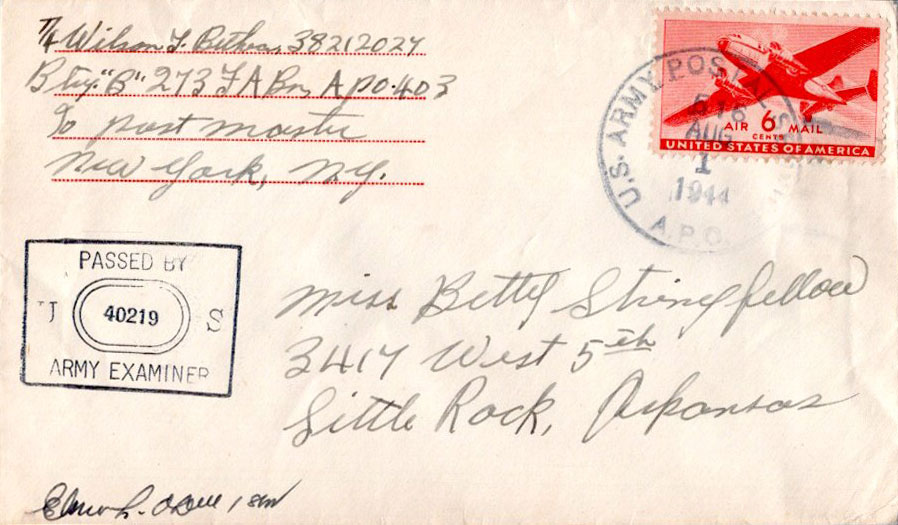 T/4 Wilson F. 38212027
Btry. "B" 273 F A Bn A.P.O. 403
c/o Post Master
New York, N.Y.
U.S. ARMY POSTAL
5 16
AUG
1
1944
A.P.O.
AIR 6 MAIL
CENTS
UNITED STATES OF AMERICA
PASSED BY
U 40219 S
ARMY EXAMINER
Miss Betty Stringfellow
3417 West 5th
Little Rock, Arkansas